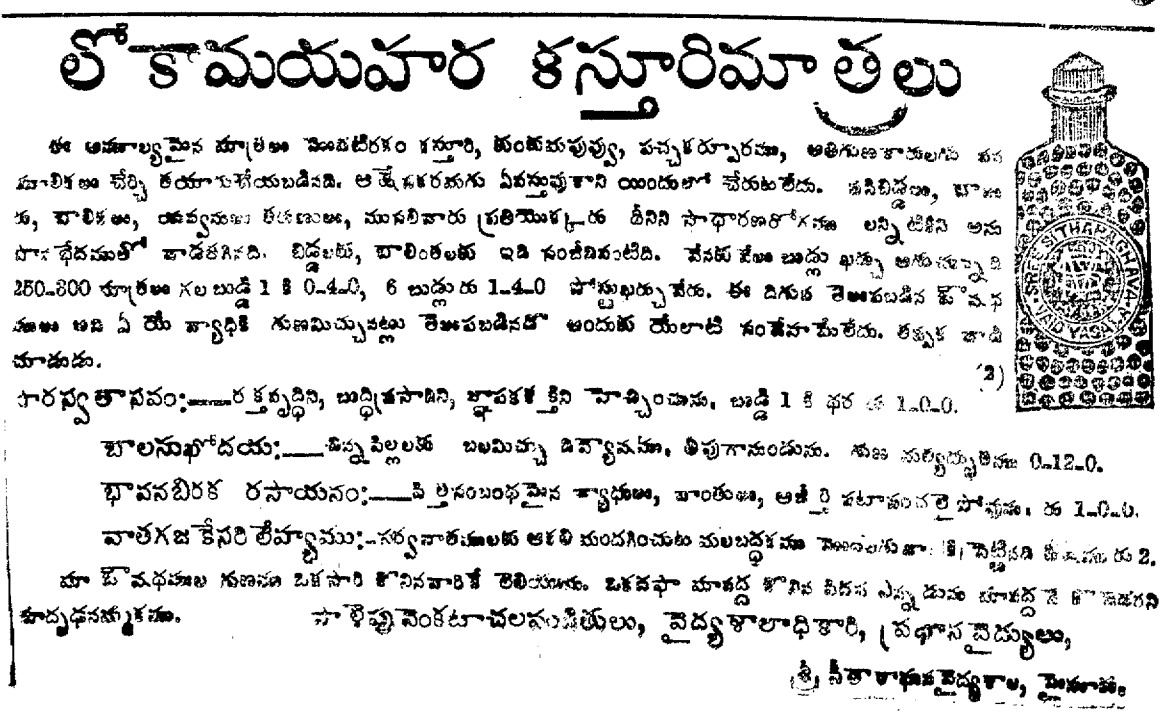 లోకామయహర కస్తూరిమాత్రలు
ఈ అమూల్యమైన మాత్రలు మొదటిరకం కస్తూరి, కుంకుమపువ్వు, పచ్చకర్పూరము, అతిగుణకారులగు వన
మూలికలు చేర్చి తయారుచేయబడినది. ఆక్షేపకరమగు ఏవస్తువుకాని యిందులో చేరుటలేదు. పసిబిడ్డలు, బాలు
రు, బాలికలు, యవ్వనులు తరుణులు, ముసలివారు ప్రతియొక్కరు దీనిని సాధారణరోగము లన్నిటికిని అను
పానభేదముతో వాడతగినది. బిడ్డలకు, బాలింతలకు ఇది సంజీవివంటిది. వేనకు వేలు బుడ్లు ఖర్చు అగుచున్నది
250-300 మాత్రలు గల బుడ్డి 1 కి 0-4-0, 6 బుడ్లు రు 1-4-0 పోస్టుఖర్చు వేరు. ఈ దిగువ తెలుపబడిన ఔషధ
ములు అవి ఏ యే వ్యాధికి గుణమిచ్చునట్లు తెలుపబడినదో అందుకు యేలాటి సందేహమేలేదు. తప్పక వాడి
చూడుడు.
(2)
సారస్వతాసవం:—రక్తవృద్ధిని, బుద్ధిప్రసాదిని, జ్ఞాపకశక్తిని హెచ్చించును, బుడ్డి 1 కి ధర రు 1-0-0.
బాలసుఖోదయ:—చిన్నపిల్లలకు బలమిచ్చు దివ్యౌషధము, తీపుగానుండును. గుణ మత్యద్భుతము 0-12-0.
భావనజీరక రసాయనం:—పిత్తసంబంధమైన వ్యాధులు, వాంతులు, అజీర్తి పటాపంచలై పోవును. రు 1-0-0.
వాతగజ కేసరి లేహ్యము:-సర్వవాతములకు ఆకలి మందగించుట మలబద్ధకము మొదలగు పెట్టినది రు 2.
మా ఔషధముల గుణము ఒకసారి కొనినవారికే తెలియును. ఒకదఫా మావద్ద కొనిన పిదప ఎన్నడును మావద్దనే
మాదృఢనమ్మకము. వెంకటాచలపండితులు, వైద్యశాలాధికారి, ప్రధానవైద్యులు,
శ్రీ సీతారాఘవవైద్యశాల, మైసూరు.
SREE SITHARAGHAVA VAIDYASALA